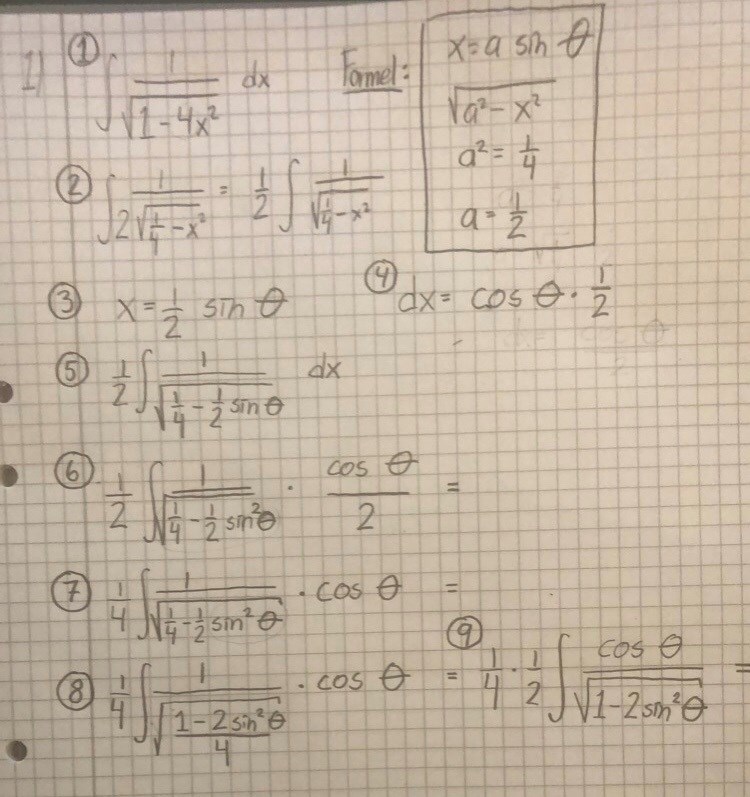 1) ① ∫ 1/√(1-4x²) dx Formel:
x = a sin θ
√(a² - x²)
a² = 1/4
a = 1/2
② ∫ 1/(2√(1/4 - x²)) = 1/2 ∫ 1/√(1/4 - x²)
③ x = 1/2 sin θ ④ dx = cos θ · 1/2
⑤ 1/2 ∫ 1/√(1/4 - 1/2 sin θ) dx
⑥ 1/2 ∫ 1/√(1/4 - 1/2 sin² θ) · cos θ/2 =
⑦ 1/4 ∫ 1/√(1/4 - 1/2 sin² θ) · cos θ =
⑧ 1/4 ∫ 1/√((1 - 2 sin² θ)/4) · cos θ = ⑨ 1/4 · 1/2 ∫ cos θ/√(1 - 2 sin² θ) =